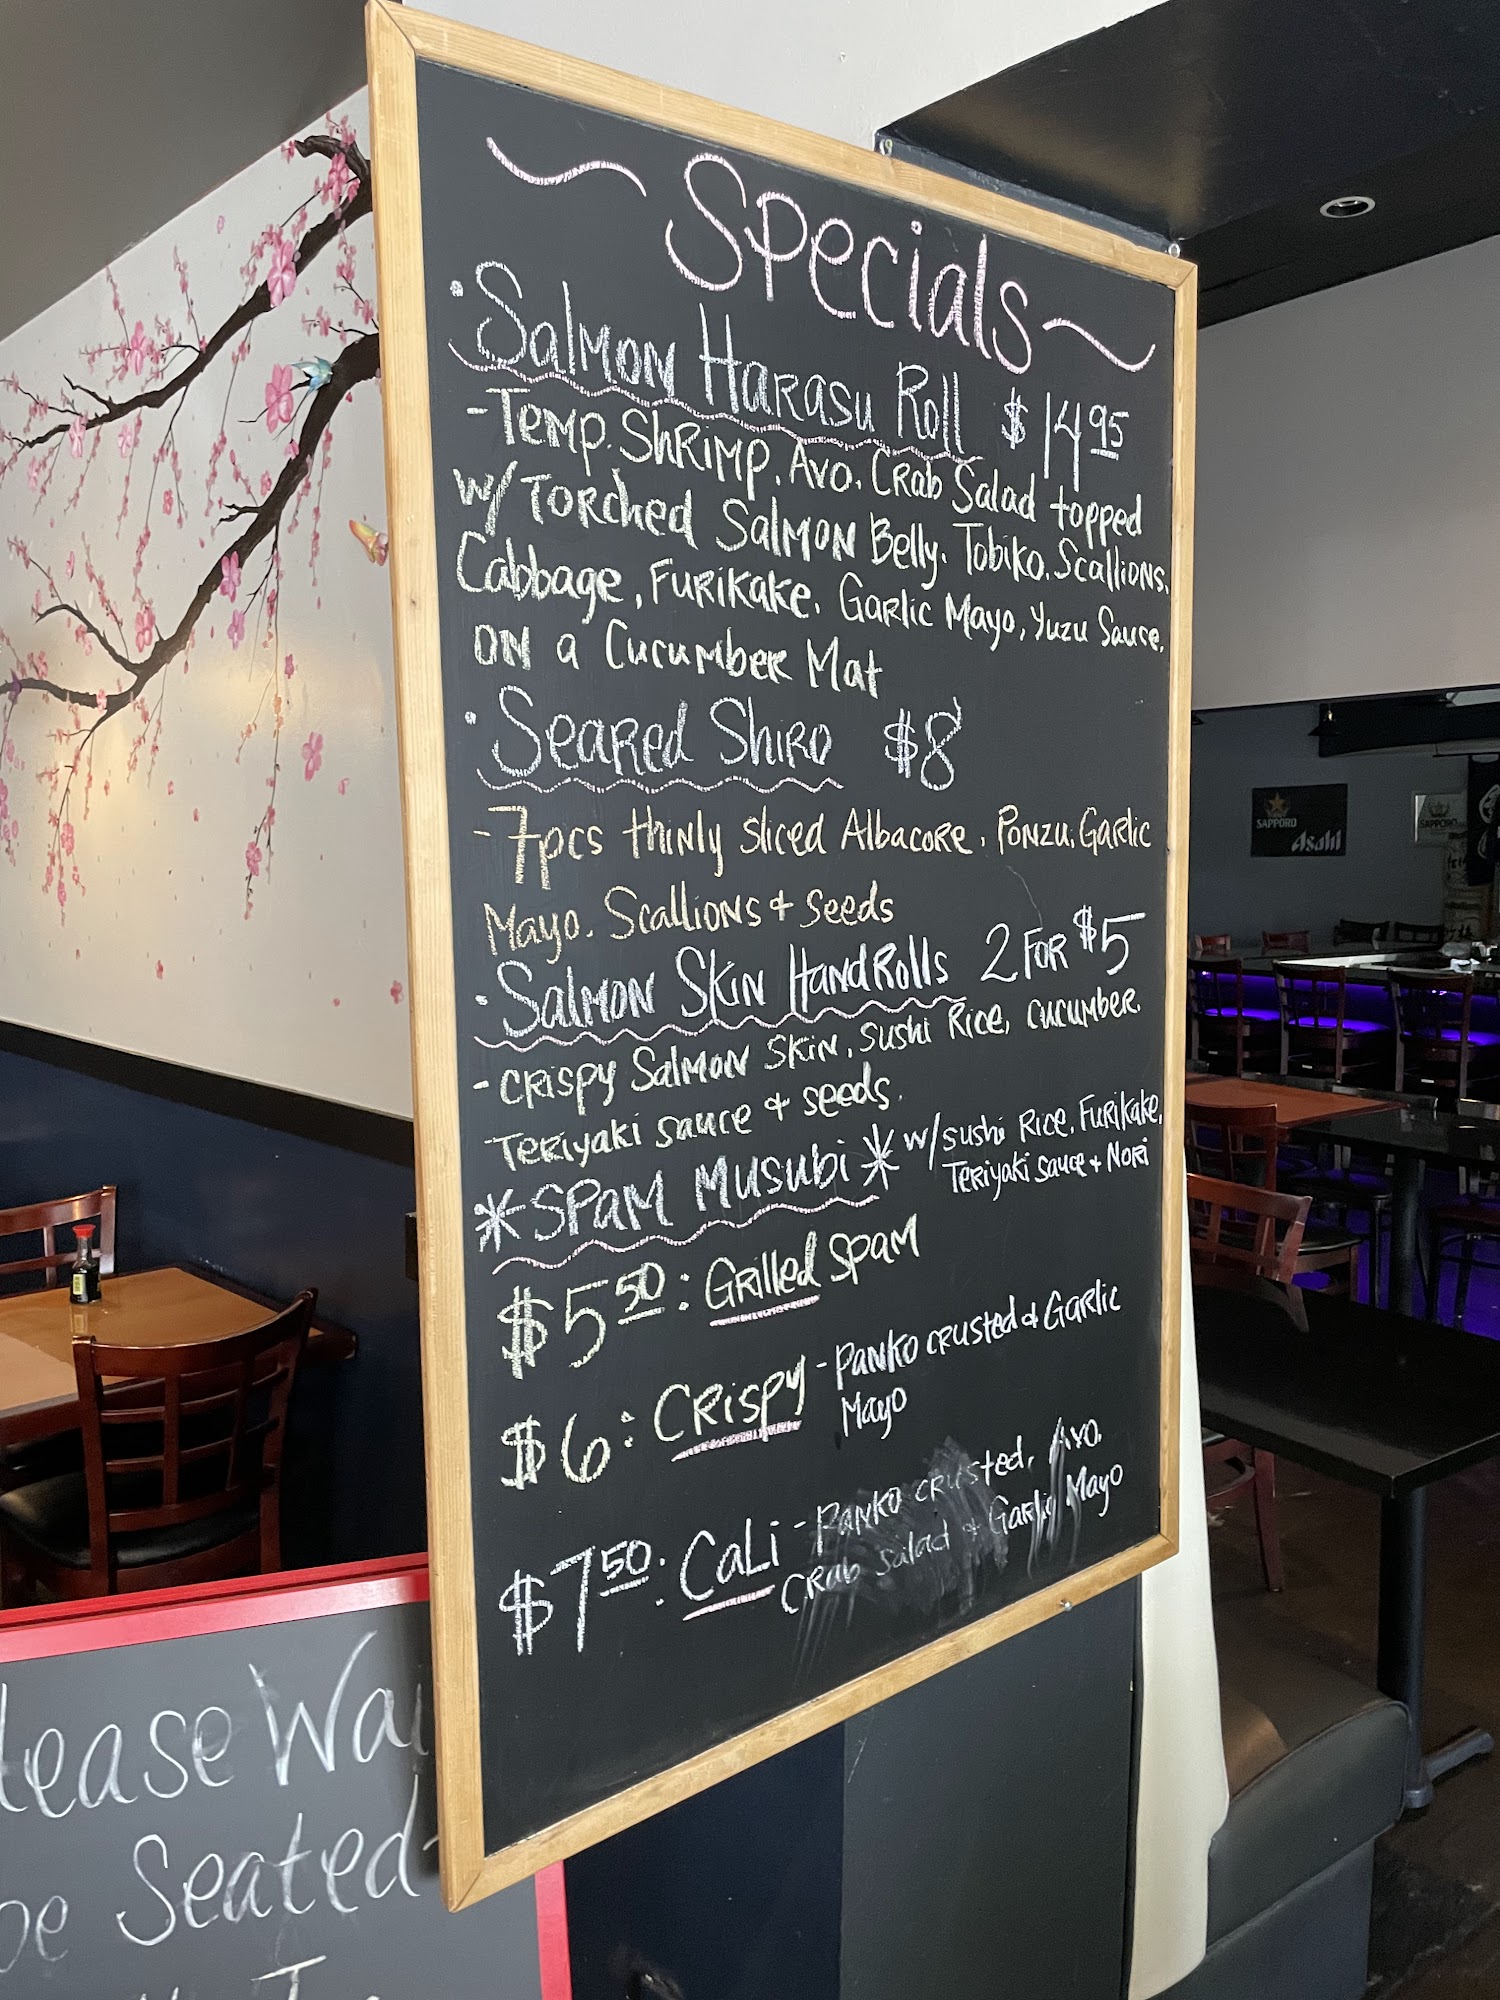 ~ Specials ~
• Salmon Harasu Roll $14.95
- Temp. Shrimp, Avo. Crab Salad topped
w/ Torched Salmon Belly. Tobiko. Scallions.
Cabbage, Furikake. Garlic Mayo, Yuzu Sauce.
on a Cucumber Mat
• Seared Shiro $8
- 7pcs thinly sliced Albacore, Ponzu, Garlic
Mayo. Scallions + seeds
• Salmon Skin HandRolls 2 for $5
- Crispy Salmon Skin, sushi Rice, cucumber.
Teriyaki sauce + seeds.
* Spam Musubi * w/ sushi Rice, Furikake,
Teriyaki sauce + Nori
$5.50: Grilled Spam
$6: Crispy - Panko crusted + Garlic
Mayo
$7.50: Cali - Panko crusted, Avo.
Crab Salad + Garlic Mayo
lease Wai
be Seated
SAPPORO
Asahi
SAPPORO